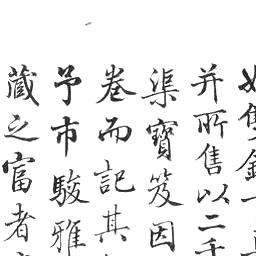 售金
并所售以二千
渠寶笈因
卷而記其
予市駿雅
藏之富者